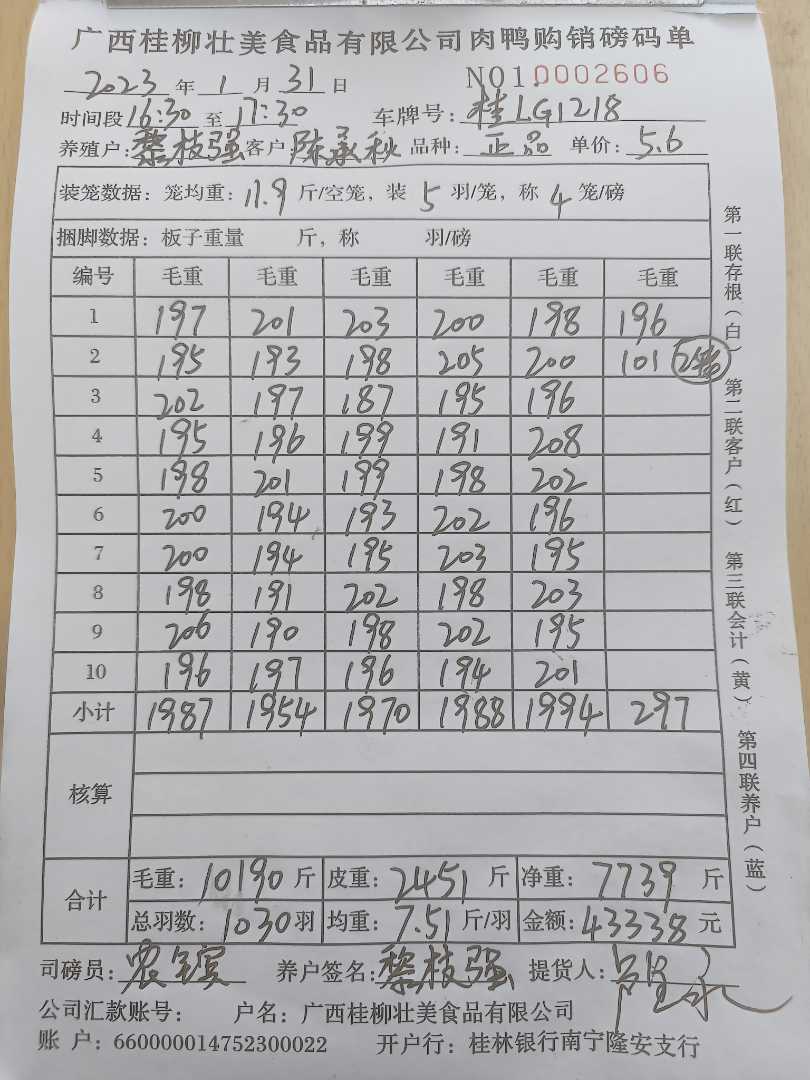 广西桂柳壮美食品有限公司肉鸭购销磅码单
2023 年 1 月 31 日 NO1.0002606
时间段 16:30 至 17:30 车牌号: 桂LG1218
养殖户: 黎枝强 客户 陈承秋 品种: 正品 单价: 5.6
装笼数据: 笼均重: 11.9 斤/空笼, 装 5 羽/笼, 称 4 笼/磅
捆脚数据: 板子重量 斤, 称 羽/磅
编号 毛重 毛重 毛重 毛重 毛重 毛重
1 197 201 203 200 198 196
2 195 193 198 205 200 101
3 202 197 187 195 196
4 195 196 199 191 208
5 198 201 199 198 202
6 200 194 193 202 196
7 200 194 195 203 195
8 198 191 202 198 203
9 206 190 198 202 195
10 196 197 196 194 201
小计 1987 1954 1970 1988 1994 297
核算
合计 毛重: 10190 斤 皮重: 2451 斤 净重: 7739 斤
总羽数: 1030 羽 均重: 7.51 斤/羽 金额: 43338 元
司磅员: 养户签名: 黎枝强 提货人:
公司汇款账号: 户名: 广西桂柳壮美食品有限公司
账 户: 660000014752300022 开户行: 桂林银行南宁隆安支行
第一联存根(白) 第二联客户(红) 第三联会计(黄) 第四联养户(蓝)